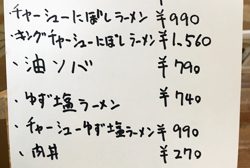 チャーシューにぼしラーメン ¥990
・キングチャーシューにぼしラーメン ¥1,560
・油ソバ ¥790
・ゆず塩ラーメン ¥740
・チャーシューゆず塩ラーメン ¥990
・肉丼 ¥270